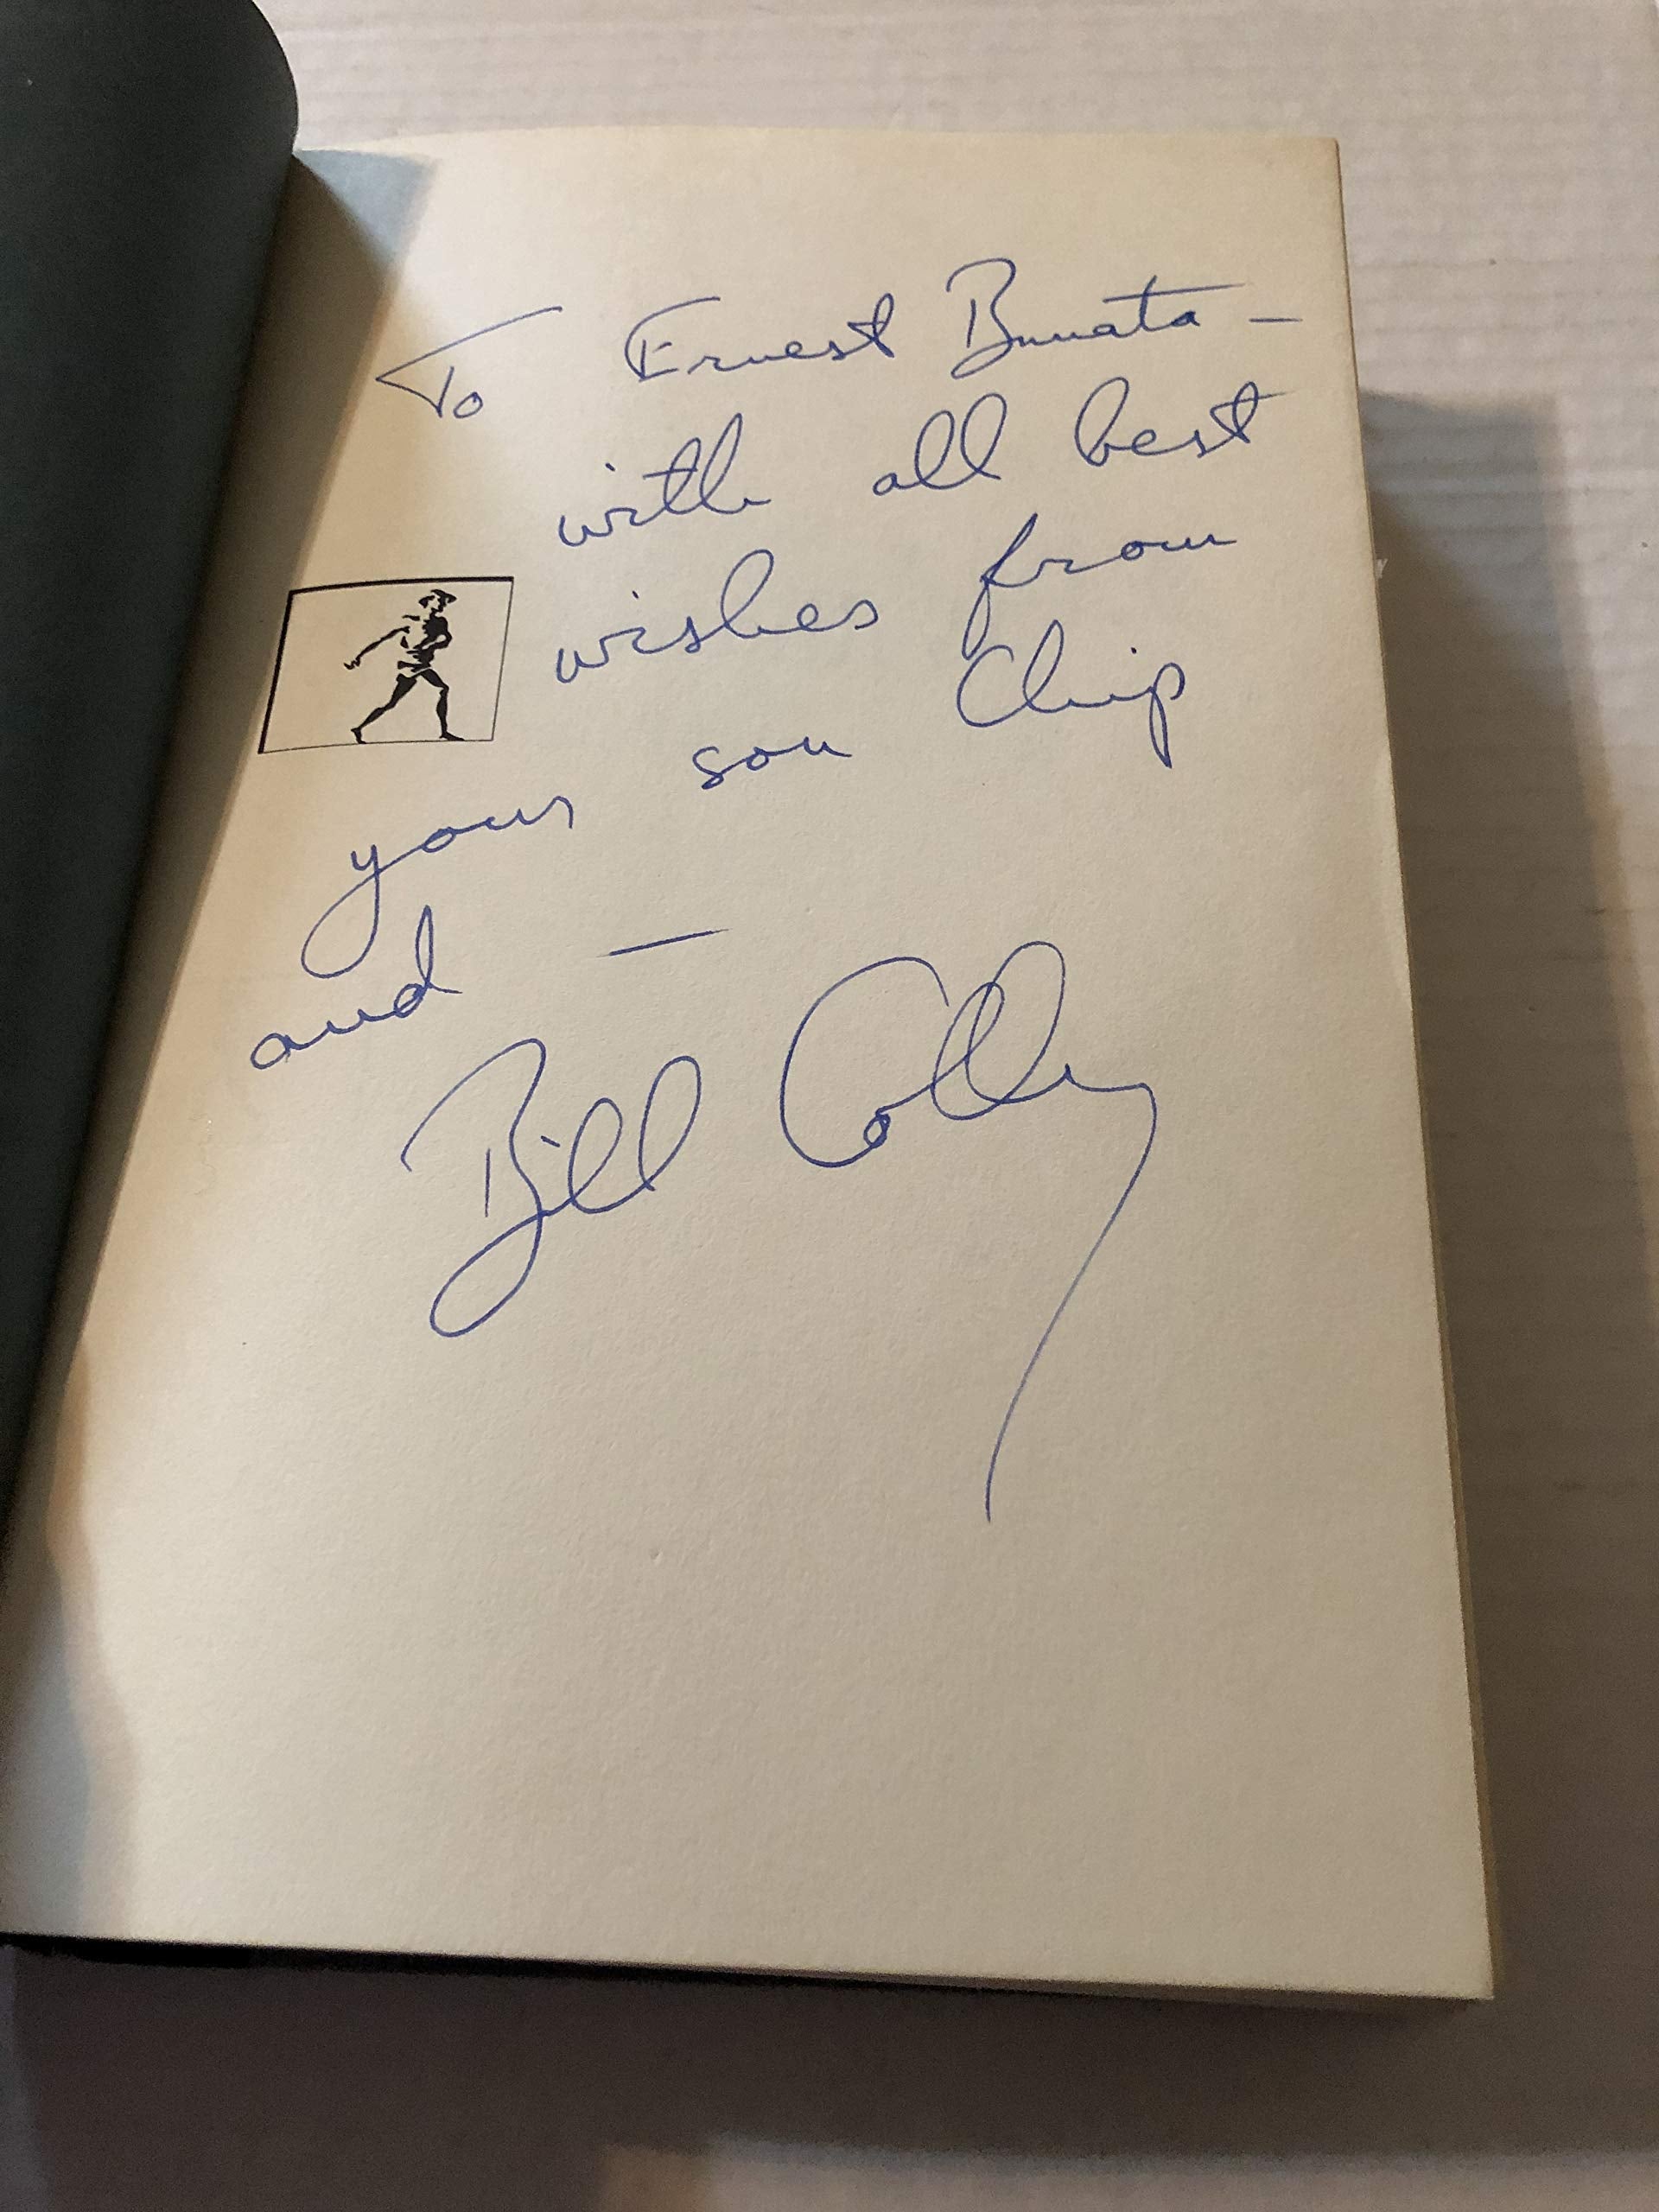 To Ernest Bunata –
with all best
wishes from
your son Chip
and —
Bill Colby